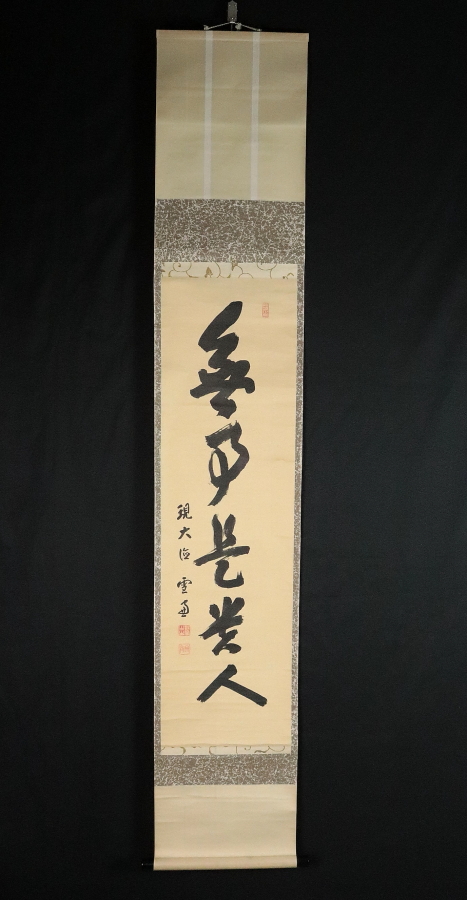 無事是貴人
現大徳 雪斎